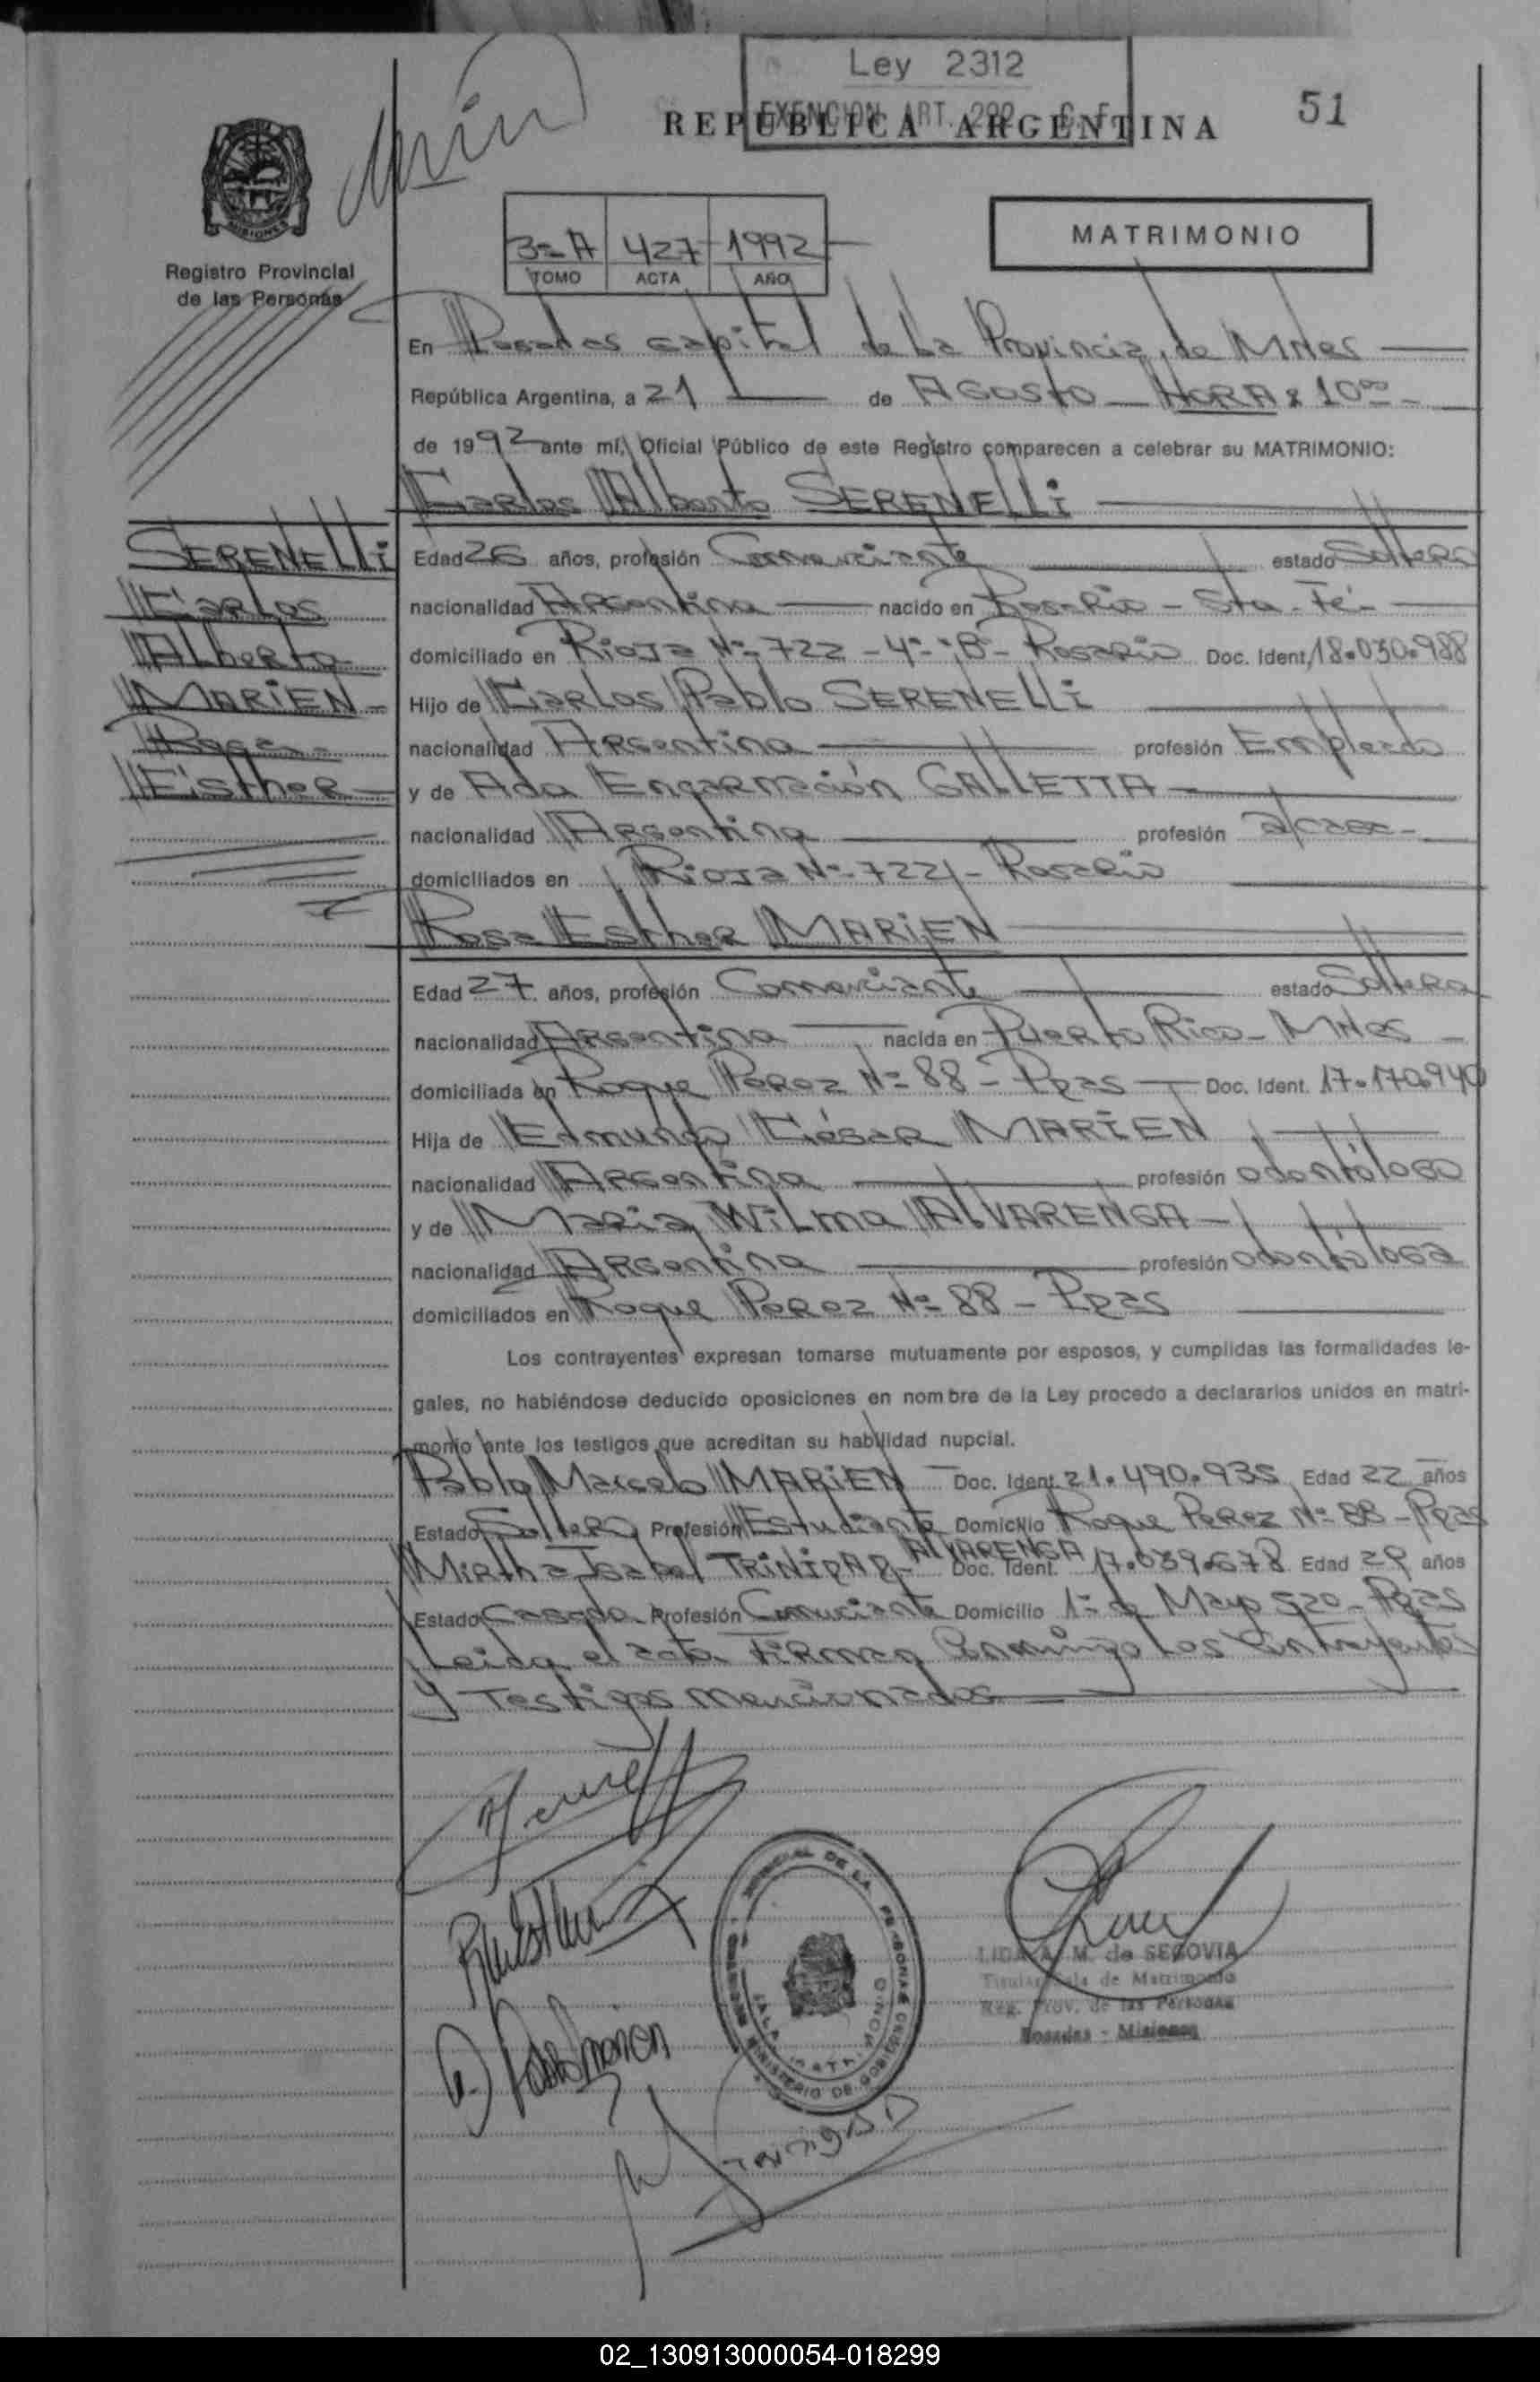 Ley 2312
EXENCION ART. C. F.
REPUBLICA ARGENTINA
51
Registro Provincial
de las Personas
3=A 427 1992
TOMO ACTA AÑO
MATRIMONIO
En Posadas capital de La Provincia de MNes
República Argentina, a 21 de AGOSTO HORA: 10°°
de 1992 ante mí, Oficial Público de este Registro comparecen a celebrar su MATRIMONIO:
Carlos Alberto SERENELLi
SERENELLi
Carlos
Alberto
MARiEN
Rosa
Esther
Edad 26 años, profesión Comerciante estado Soltero
nacionalidad Argentina nacido en Rosario - Sta. Fé
domiciliado en Rioja Nº 722 - 4º "B" Rosario Doc. Ident. 18.030.988
Hijo de Carlos Pablo SERENELLi
nacionalidad Argentina profesión Empleado
y de Ada Encarnación GALLETTA
nacionalidad Argentina profesión
domiciliados en Rioja Nº 722 - Rosario
Rosa Esther MARiEN
Edad 27 años, profesión Comerciante estado Soltera
nacionalidad Argentina nacida en Puerto Rico - MNes
domiciliada en Roque Perez Nº 88 - Pdas Doc. Ident. 17.170.940
Hija de Edmundo César MARiEN
nacionalidad Argentina profesión odontólogo
y de Maria Wilma ALVARENGA
nacionalidad Argentina profesión odontóloga
domiciliados en Roque Perez Nº 88 - Pdas
Los contrayentes expresan tomarse mutuamente por esposos, y cumplidas las formalidades le-
gales, no habiéndose deducido oposiciones en nombre de la Ley procedo a declararlos unidos en matri-
monio ante los testigos que acreditan su habilidad nupcial.
Pablo Marcelo MARiEN Doc. Ident. 21.490.935 Edad 22 años
Estado Soltero Profesión Estudiante Domicilio Roque Perez Nº 88 - Pdas
Mirtha Isabel TRiNiDAD ALVARENGA Doc. Ident. 17.039.678 Edad 29 años
Estado Casada Profesión Comerciante Domicilio 1º de Mayo 520 - Pdas
Leida el acta Firman Conmigo Los Contrayentes
y Testigos mencionados
LIDA A. M. de SEGOVIA
Titular Sala de Matrimonio
Reg. Prov. de las Personas
Posadas - Misiones
02_130913000054-018299